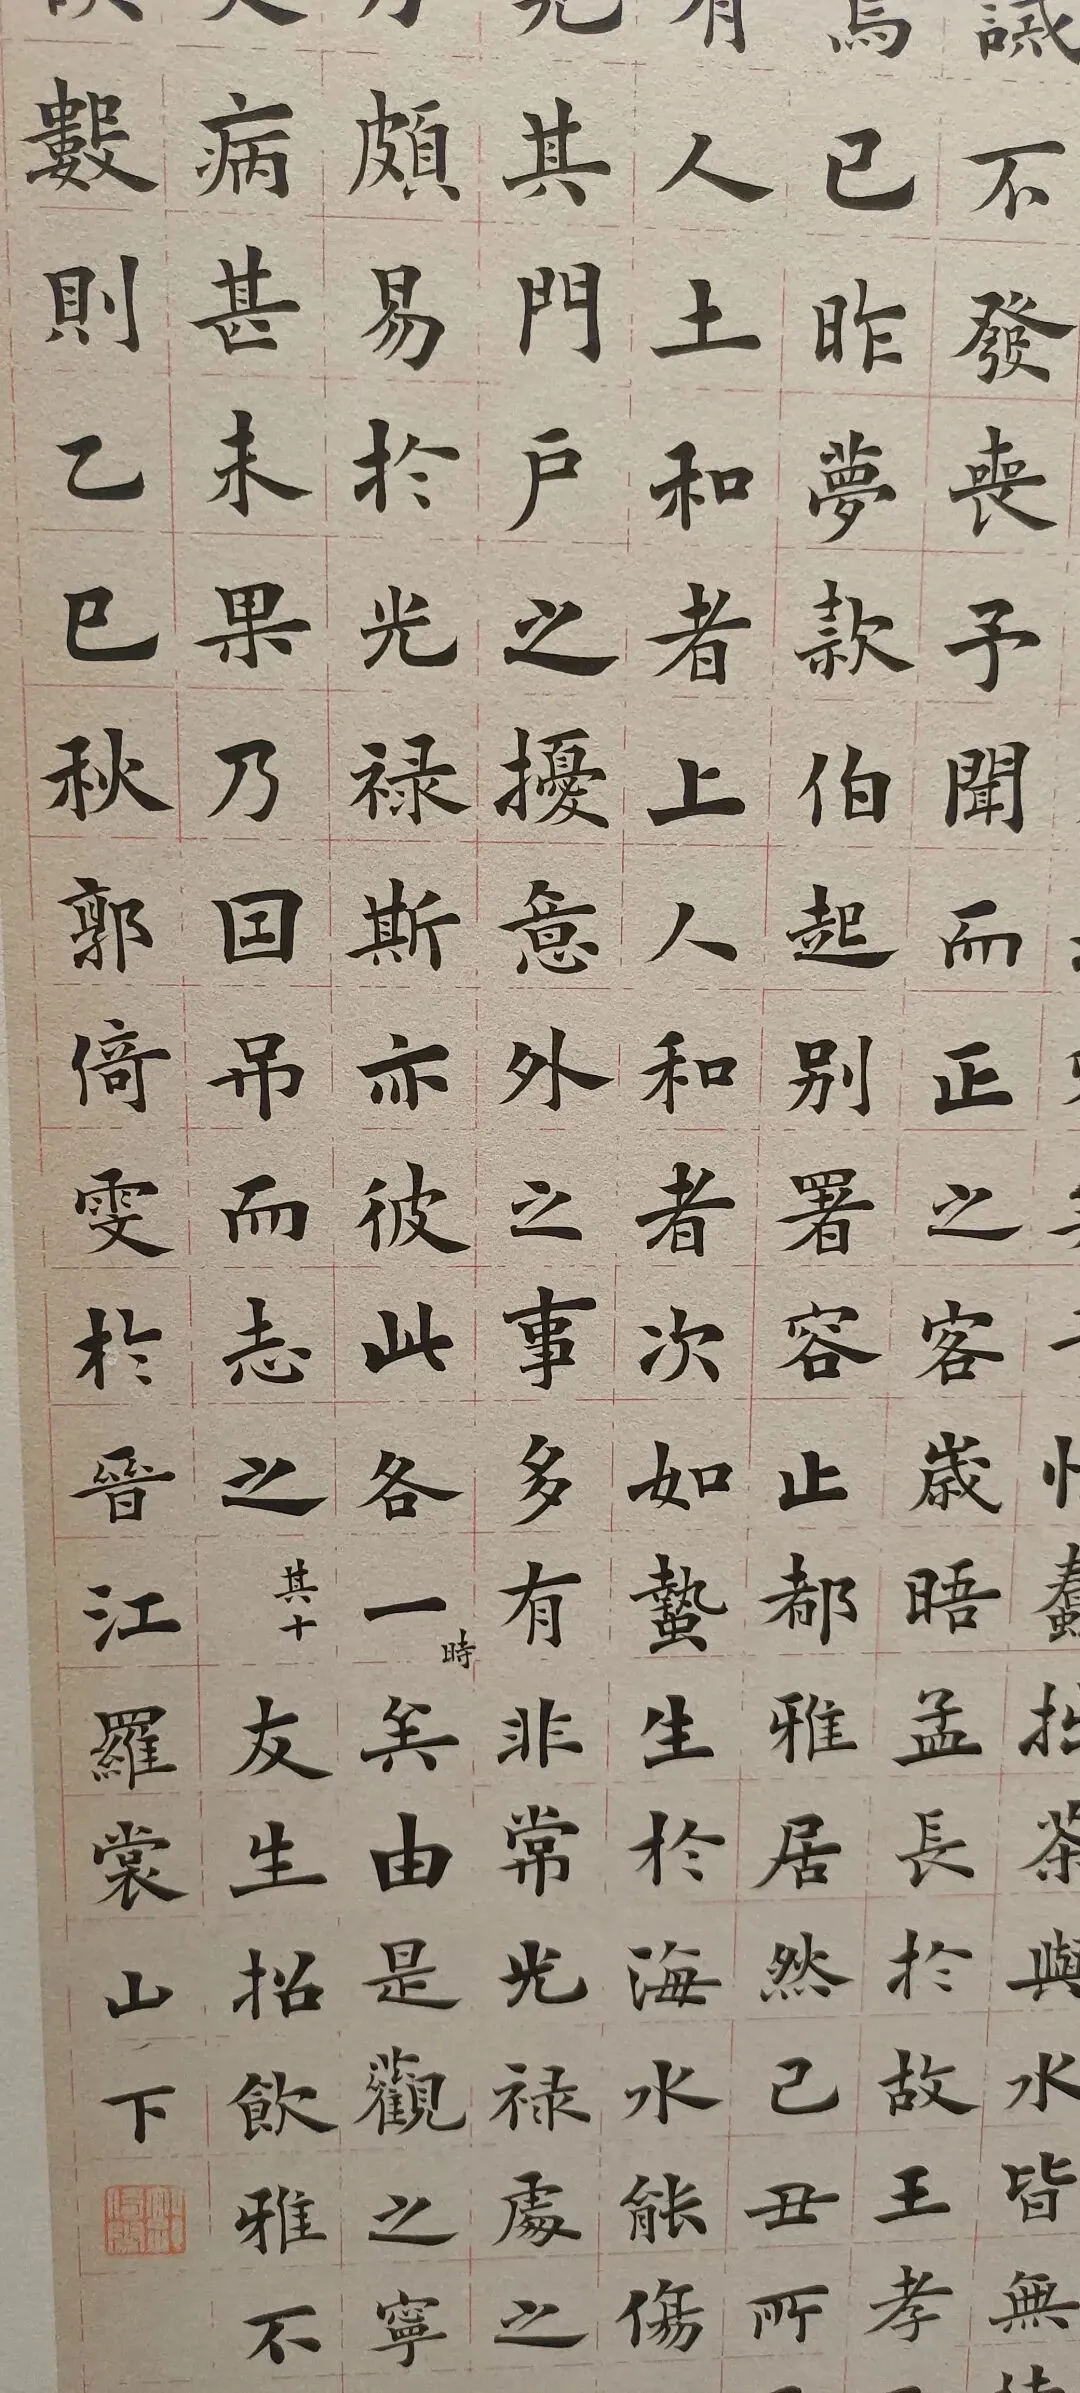 蠢拙茶與水皆無
誡不發喪予聞而正之客歲晤孟長於故王孝
焉已昨夢款伯起別署容止都雅居然己丑所
有人土和者上人和者次如蟄生於海水能傷
其門戶之擾意外之事多有非常光祿處之
頗易於光祿斯亦彼此各一時矣由是觀之寧
病甚未果乃囙吊而志之其十友生招飲雅不
數則乙巳秋郭倚雯於晉江羅裳山下